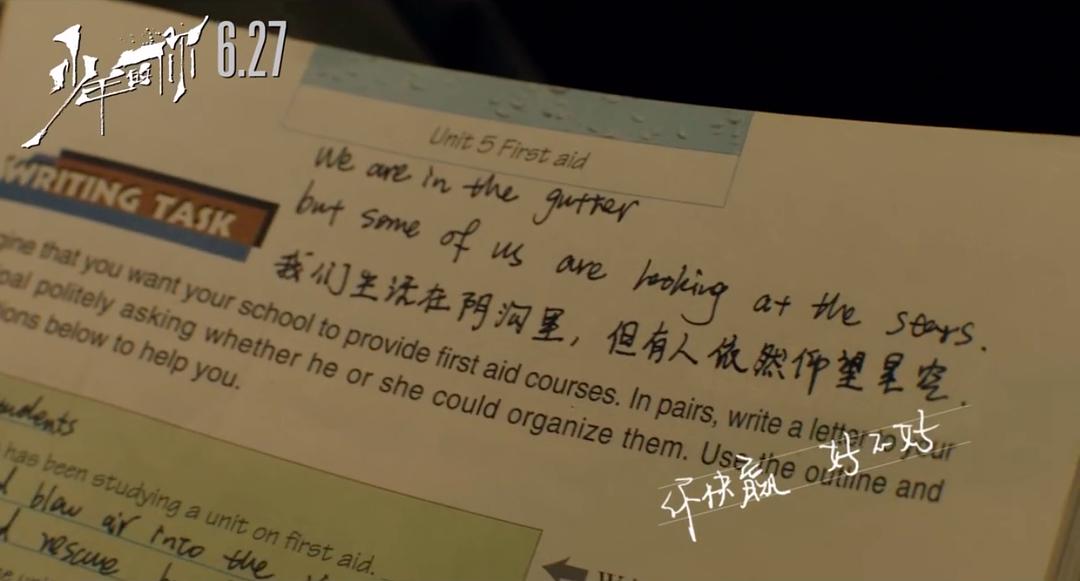 少年的你 6.27
Unit 5 First aid
We are in the gutter
but some of us are looking at the stars.
我们生活在阴沟里，但有人依然仰望星空.
WRITING TASK
gine that you want your school to provide first aid courses. In pairs, write a letter to your
pal politely asking whether he or she could organize them. Use the outline and
ions below to help you.
你快赢 好不好
udents
has been studying a unit on first aid.
d blow air into the
d rescue